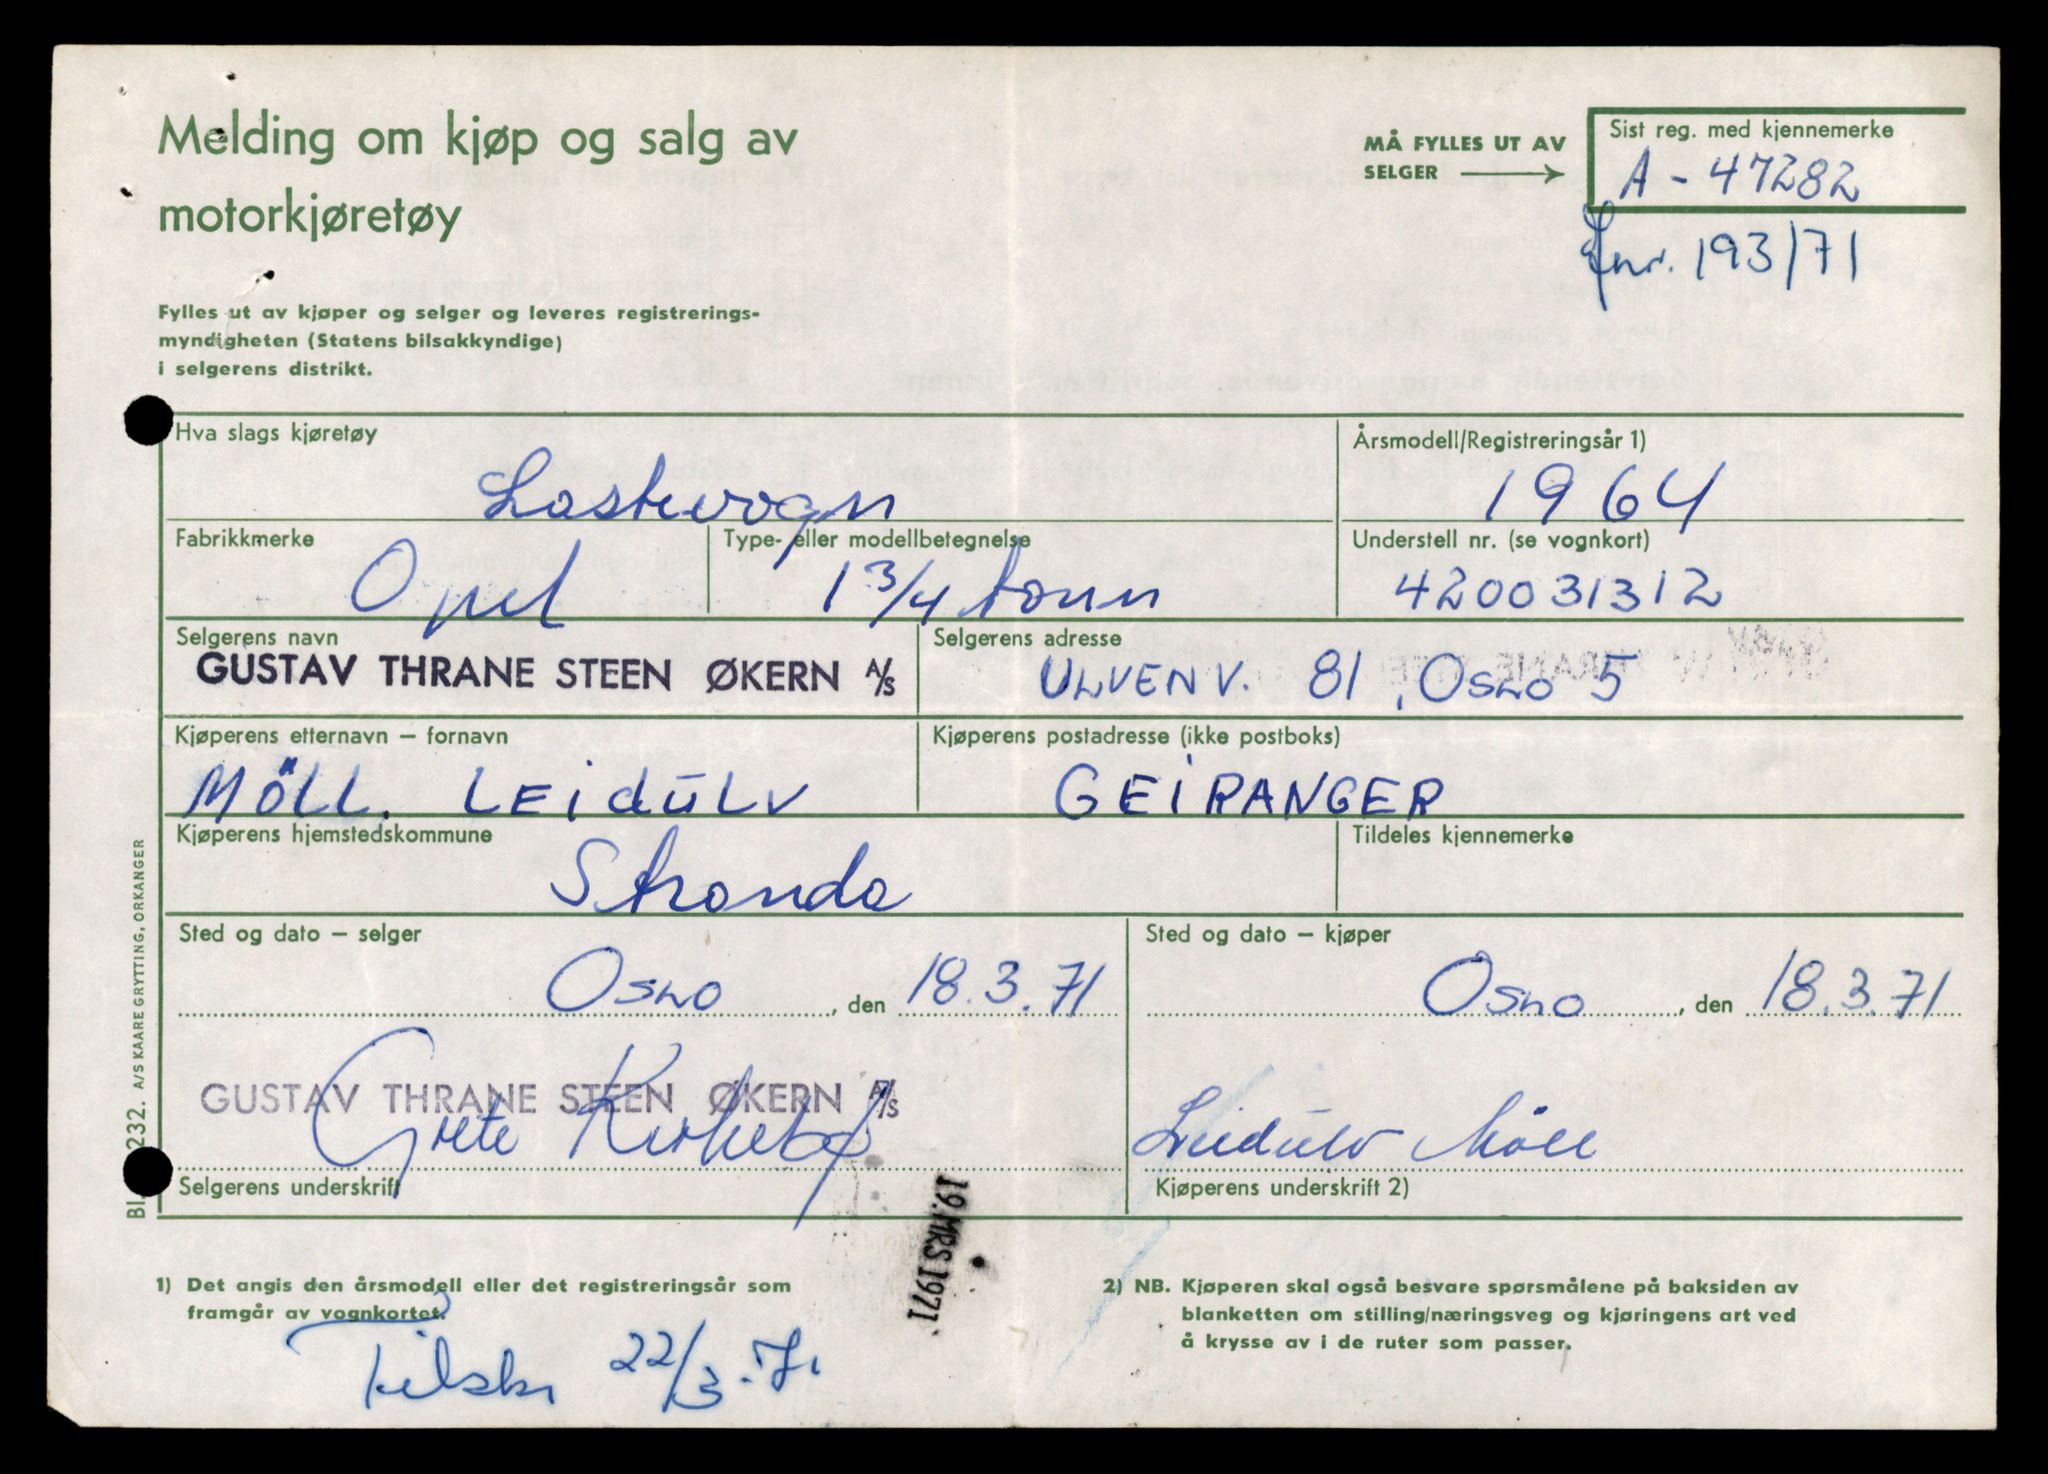 Melding om kjøp og salg av
motorkjøretøy
MÅ FYLLES UT AV
SELGER
Sist reg. med kjennemerke
A - 47282
Jnr. 193/71
Fylles ut av kjøper og selger og leveres registrerings-
myndigheten (Statens bilsakkyndige)
i selgerens distrikt.
Hva slags kjøretøy
Lastevogn
Årsmodell/Registreringsår 1)
1964
Fabrikkmerke
Opel
Type- eller modellbetegnelse
1 3/4 tonn
Understell nr. (se vognkort)
420031312
Selgerens navn
GUSTAV THRANE STEEN ØKERN A/S
Selgerens adresse
ULVENV. 81, OSLO 5
Kjøperens etternavn – fornavn
MÖLL. LEIDULV
Kjøperens postadresse (ikke postboks)
GEIRANGER
Kjøperens hjemstedskommune
Stranda
Tildeles kjennemerke
Sted og dato – selger
Oslo, den 18.3.71
Sted og dato – kjøper
Oslo, den 18.3.71
GUSTAV THRANE STEEN ØKERN A/S
Grete
Leidulv Möll
Selgerens underskrift
Kjøperens underskrift 2)
19. MRS 1971
1) Det angis den årsmodell eller det registreringsår som
framgår av vognkortet.
2) NB. Kjøperen skal også besvare spørsmålene på baksiden av
blanketten om stilling/næringsveg og kjøringens art ved
å krysse av i de ruter som passer.
Tilskr 22/3.71
232. A/S KAARE GRYTTING, ORKANGER